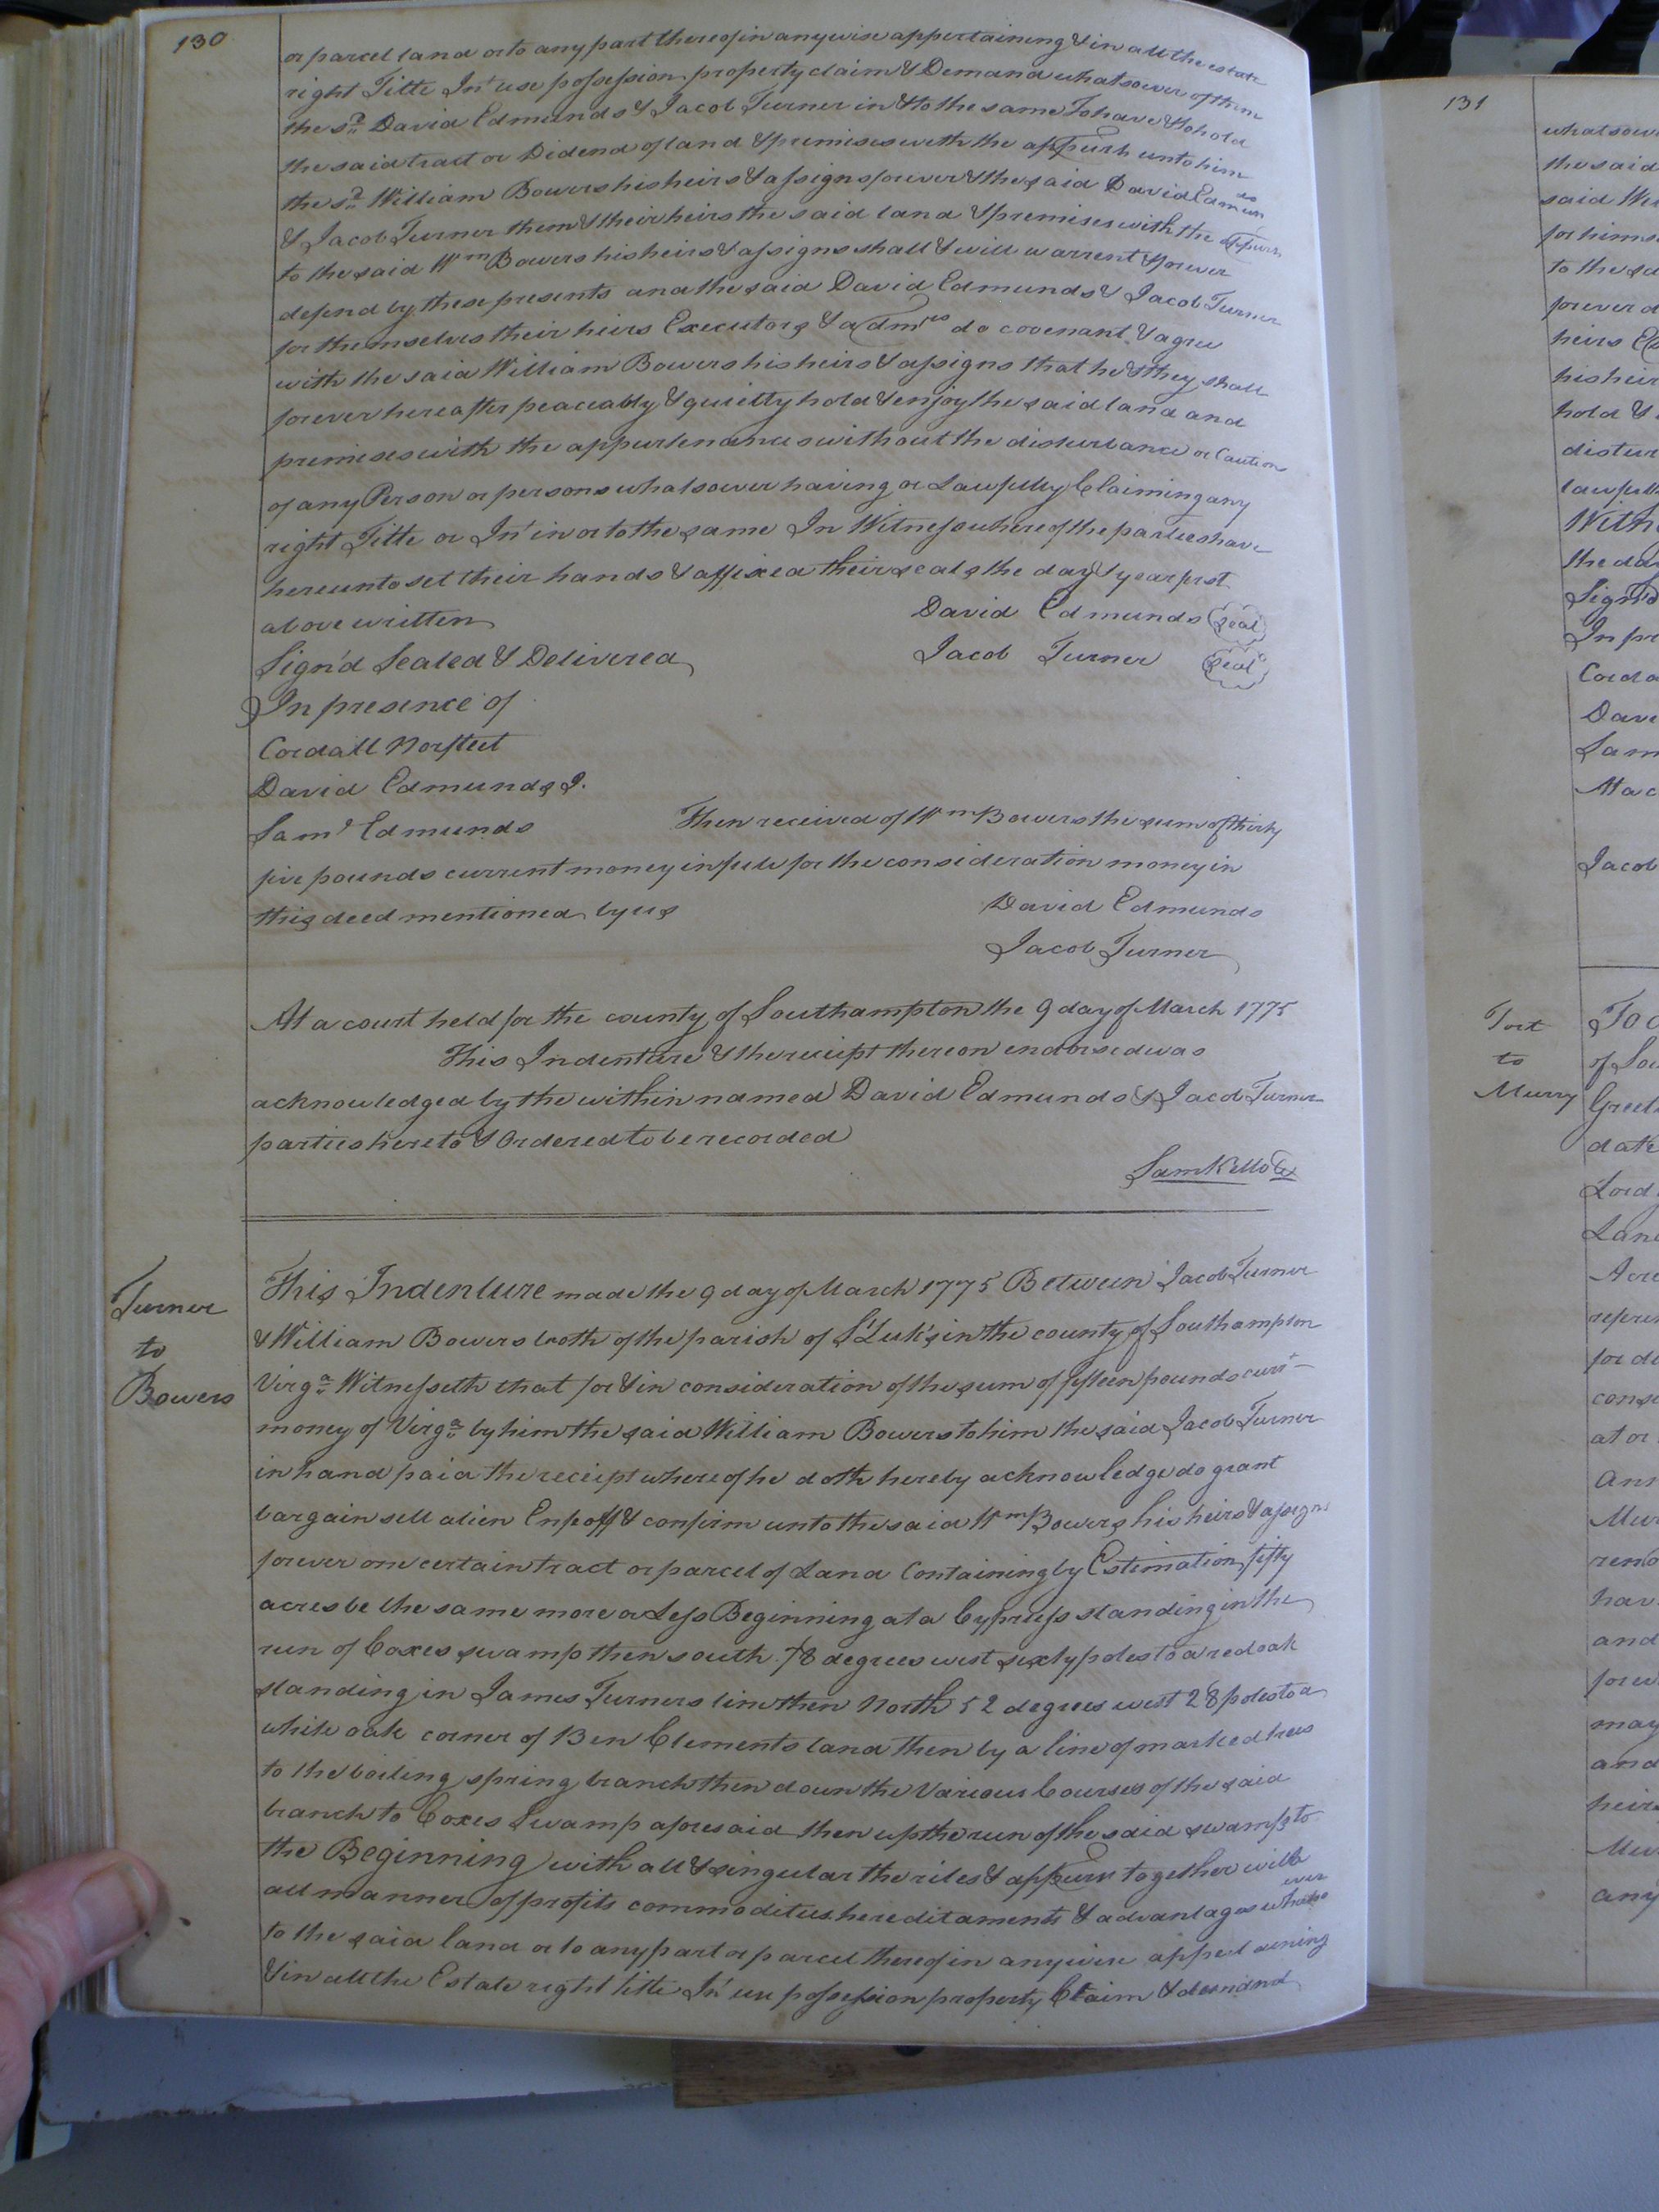 130
or parcel land or to any part thereof in any wise appertaining & in all the estate
right Title Int use possession property claim & Demand whatsoever of them
the sd David Edmunds & Jacob Turner in & to the same To have & to hold
the said tract or Didend of land & premises with the appurts unto him
the sd William Bowers his heirs & assigns forever & the said David Edmunds
& Jacob Turner them & their heirs the said land & premises with the appurts
to the said Wm Bowers his heirs & assigns shall & will warrent & forever
defend by these presents and the said David Edmunds & Jacob Turner
for themselves their heirs Executors & admrs do covenant & agree
with the said William Bowers his heirs & assigns that he & they shall
forever hereafter peaceably & quietly hold & enjoy the said land and
premises with the appurtenances without the disturbance or Caution
of any Person or persons whatsoever having or Lawfully Claiming any
right Title or Int in or to the same In Witness whereof the parties have
hereunto set their hands & affixed their seals the day & year first
above written
David Edmunds seal
Sign'd Sealed & Delivered
Jacob Turner seal
In presence of
Cordall Norfleet
David Edmunds J.
Saml Edmunds Then received of Wm Bowers the sum of thirty
five pounds current money in full for the consideration money in
this deed mentioned by us
David Edmunds
Jacob Turner
At a court held for the county of Southampton the 9 day of March 1775
This Indenture & the receipt thereon endorsed was
acknowledged by the within named David Edmunds & Jacob Turner
parties hereto & Ordered to be recorded
Sam Kello Cx
Turner
to
Bowers
This Indenture made the 9 day of March 1775 Between Jacob Turner
& William Bowers both of the parish of St Luk's in the county of Southampton
Virga Witnesseth that for & in consideration of the sum of fifteen pounds currt
money of Virga by him the said William Bowers to him the said Jacob Turner
in hand paid the receipt whereof he doth hereby acknowledge do grant
bargain sell alien Enfeoff & confirm unto the said Wm Bowers his heirs & assigns
forever one certain tract or parcel of Land Containing by Estimation fifty
acres be the same more or Less Beginning at a Cypress standing in the
run of Coxes swamp then south 78 degrees west sixty poles to a red oak
standing in James Turners line then North 52 degrees west 28 poles to a
white oak corner of Ben Clements land then by a line of marked trees
to the boiling spring branch then down the Various Courses of the said
branch to Coxes Swamp aforesaid then up the run of the said swamp to
the Beginning with all & singular the rites & appurts together with
all manner of profits commodities hereditaments & advantages whatsoever
to the said land or to any part or parcel thereof in any wise appertaining
& in all the Estate right title Int use possession property Claim & demand
131
whatsoev
the said
said
for hims
to the sa
forever d
heirs
his heir
hold &
distur
lawfull
Witn
the da
Sign'd
In pre
Corda
Davi
Sam
At a c
Jacob
Tort
to
Murry
To
of Sou
Greet
date
Lord
Land
Acre
for
cons
at or
Ann
Mur
hav
and
may
and
heirs
Mur
any